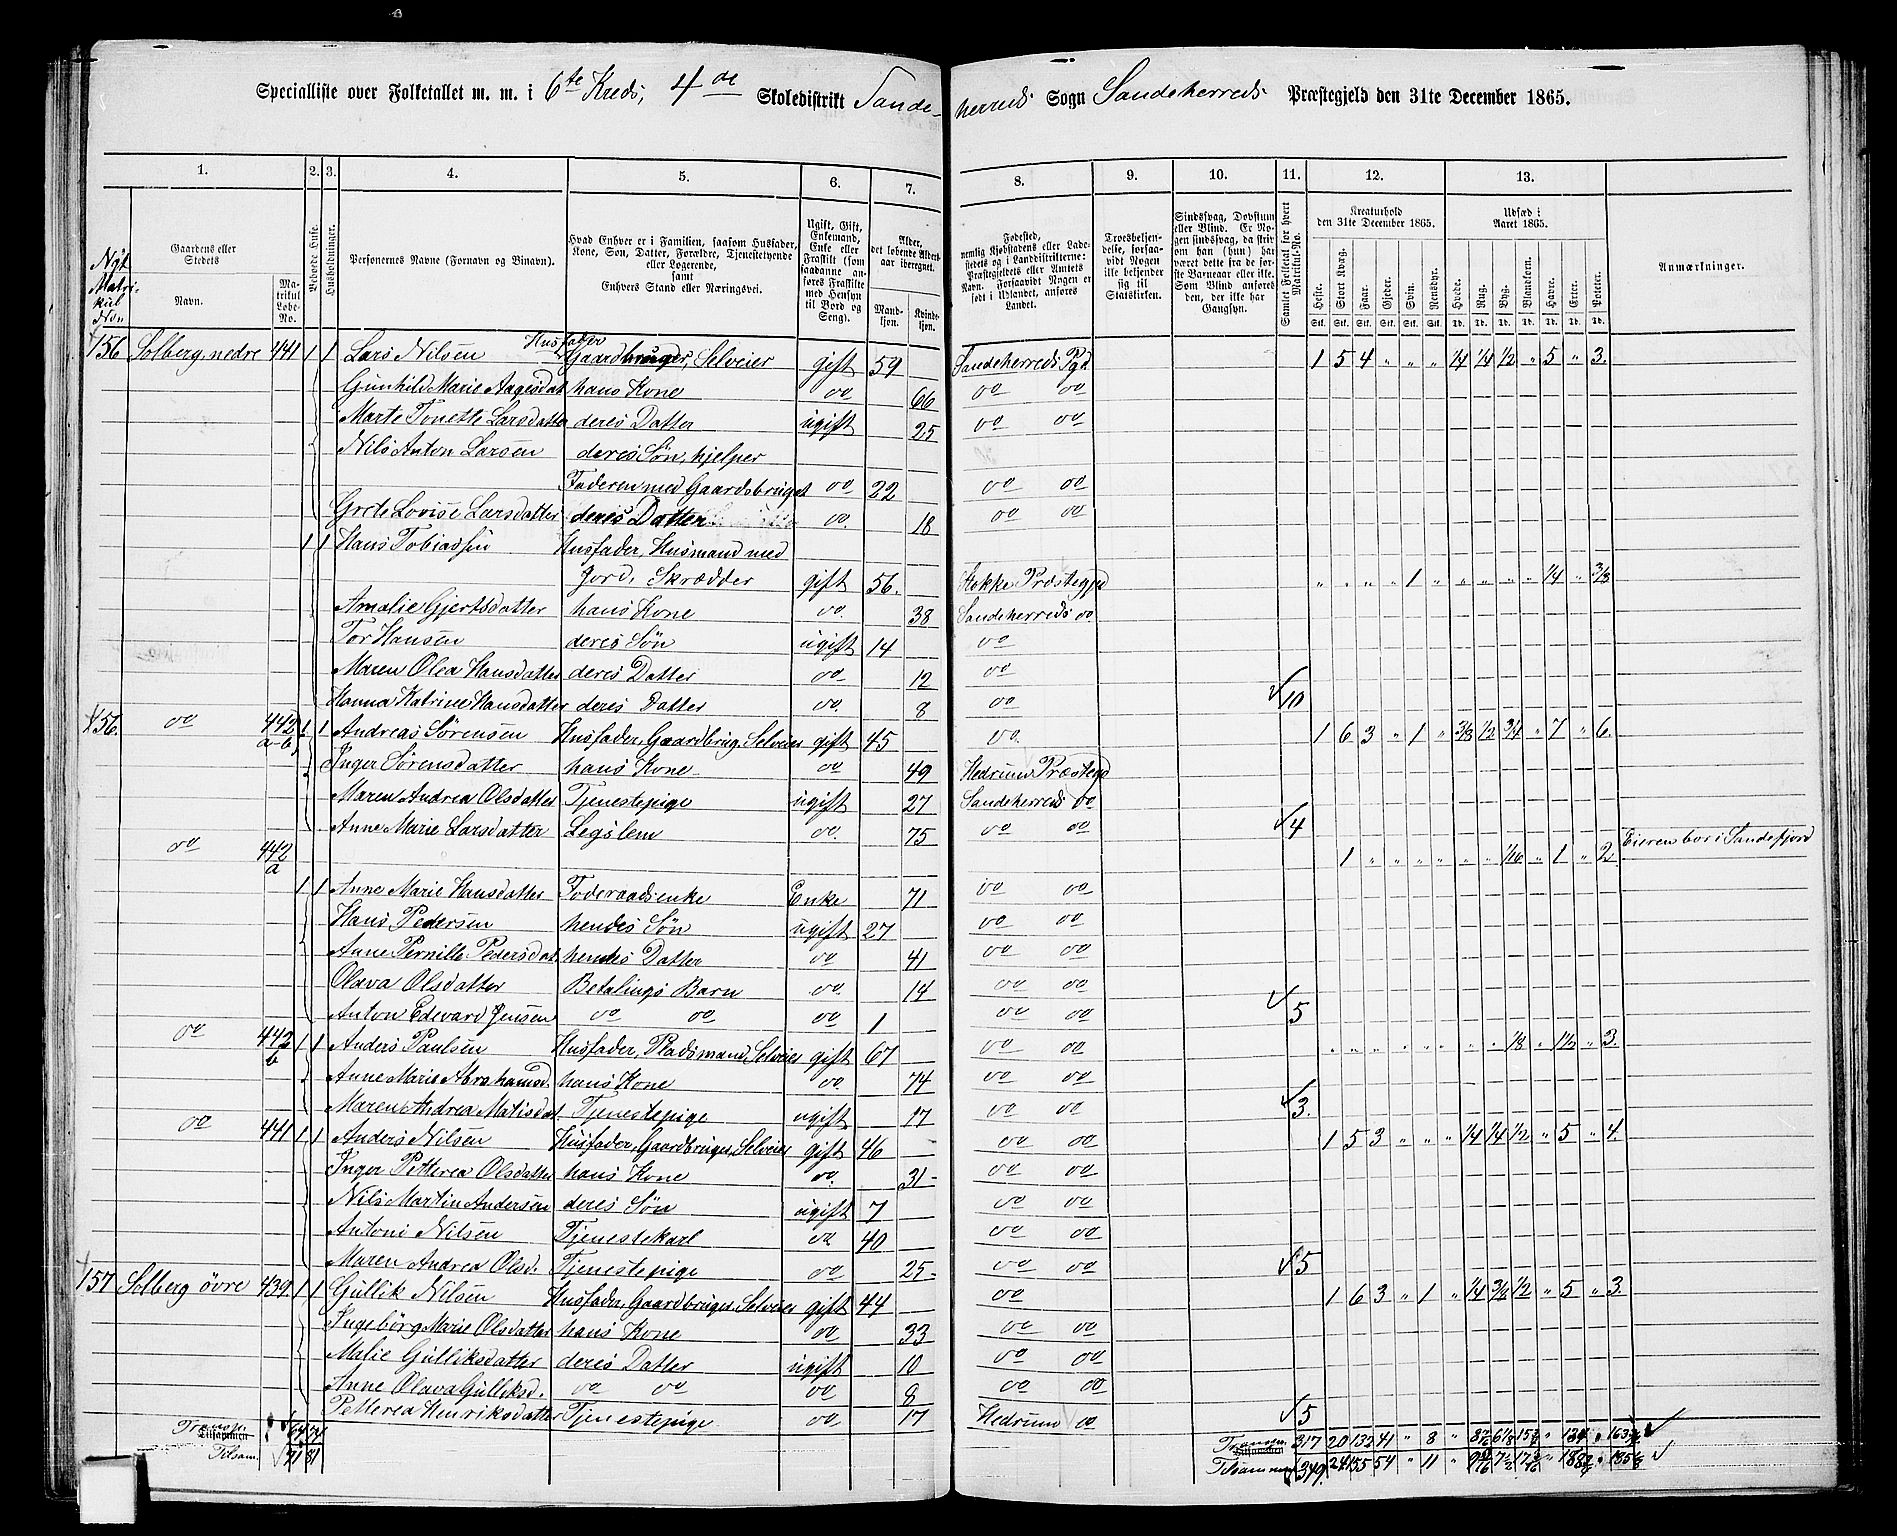 Specialliste over Folketallet m. m. i 6te Kreds, 4de Skoledistrikt Sande-
herreds Sogn Sandeherreds Præstegjeld den 31te December 1865.
1. 2. 3. 4. 5. 6. 7. 8. 9. 10. 11. 12. 13.
Nyt Matrikul Non
Gaardens eller Stedets
Navn.
Matrikul Løbe-No.
Beboede Huse.
Husholdninger.
Personernes Navne (Fornavn og Binavn).
Hvad Enhver er i Familien, saasom Husfader, Kone, Søn, Datter, Forældre, Tjenestetyende eller Logerende, samt Enhvers Stand eller Næringsvei.
Ugift, Gift, Enkemand, Enke eller Fraskilt (som saadanne anføres Fraskilte med Hensyn til Bord og Seng).
Alder, det løbende Alders-aar iberegnet.
Mandkjøn. Kvindekjøn.
Fødested, nemlig Kjøbstadens eller Ladestedets og i Landdistrikterne: Præstegjeldets eller Amtets Navn. Forsaavidt Nogen er født i Udlandet, anføres Landet.
Troesbekjendelse, forsaavidt Nogen ikke bekjender sig til Statskirken.
Sindssvag, Døvstum eller Blind. Er Nogen sindssvag, da skriv om han (hun) har været dette fra de første Barneaar eller ikke. Som Blind anføres den, der ikke har Gangsyn.
Samlet Folketal for hvert Matrikuls-No.
Kreaturhold den 31te December 1865.
Heste. Stort Kvæg. Faar. Gjeder. Svin. Rensdyr.
Udsæd i Aaret 1865.
Hvede. Rug. Byg. Blandkorn. Havre. Erter. Poteter.
Anmærkninger.
156 Solberg, nedre 441 1 1 Lars Nilsen Husfader Gaardbruger, Selveier gift 59 Sandeherreds Pgd. 1 5 4 " " " 1/4 1/4 1/2 " 5 " 3.
Gunhild Marie Aagesdat hans Kone do 66 do do
Marte Tonette Larsdatter deres Datter ugift 25 do do
Nils Anton Larsen deres Søn, hjelper
Faderen med Gaardsbruget do 22 do do
Grete Lovise Larsdatter deres Datter do. 18 do do
1 1 Hans Tobiassen Husfader, Husmand med
Jord, Skrædder gift 56. Stokke Præstegjd " " " " 1 " " " " " 1/4 " 3/8
Amalie Gjertsdatter hans Kone do. 38 Sandeherreds do
Tor Hansen deres Søn ugift 14 do
Maren Olea Hansdatter deres Datter do. 12 do
Hanna Katrine Hansdatter deres Datter do. 8 do 10
156. do 442 a-b 1 1 Andreas Sørensen Husfader, Gaardbrug. Selveier gift 45 do. 1 6 3 " 1 " 3/8 1/2 3/4 " 7 " 6.
Inger Sørensdatter hans Kone do 49 Hedrum Præstegd
Maren Andrea Olsdatter Tjenestepige ugift 27 Sandeherreds do
Anne Marie Larsdatter Legslem do. 75 do do 4
do 442 a 1 " " " " " " 1/16 " 1 " 2 Eieren bor i Sandefjord
1 1 Anne Marie Hansdatter Foderaadsenke Enke 71 do do
Hans Pedersen hendes Søn ugift 27 do do
Anne Pernille Pedersdat hendes Datter do 41 do do
Olava Olsdatter Betalings Barn do. 14 do do
Anton Edevard Jensen do do do 1 do do 5
do 442 b 1 1 Anders Paulsen Husfader, Pladsmand, Selveier gift 67 do do " " " " " " " " 1/8 " 1 1/2 " 3.
Anne Marie Abrahamsd. hans Kone do. 74 do do
Maren Andrea Matisdat. Tjenestepige ugift 17 do do 3.
do 441 1 1 Anders Nilsen Husfader, Gaardbruger, Selveier gift 46 do do 1 5 3 " " " 1/4 1/4 1/2 " 5 " 4.
Inger Petterea Olsdatter hans Kone do. 31 do do
Nils Martin Andersen deres Søn ugift 7 do do
Antoni Nilsen Tjenestekarl do 40 do do
Maren Andrea Olsd. Tjenestepige do 25 do do 5
157 Solberg övre 439 1 1 Gullik Nilsen Husfader, Gaardbruger, Selveier gift 44 do 1 6 3 " 1 " 1/4 3/4 1/2 " 5 " 3.
Ingebörg Marie Olsdatter hans Kone do 33 do do
Malie Gulliksdatter deres Datter ugift 10 do do
Anne Olava Gulliksd. do do do 8 do do
Petterea Henriksdatter Tjenestepige do 17 Hedrum do 5
Tilsammen
Tilsam.
Tilsammen 317 20 132 41 " 8 "
Tilsammen 349. 24 155 54 " 11 "